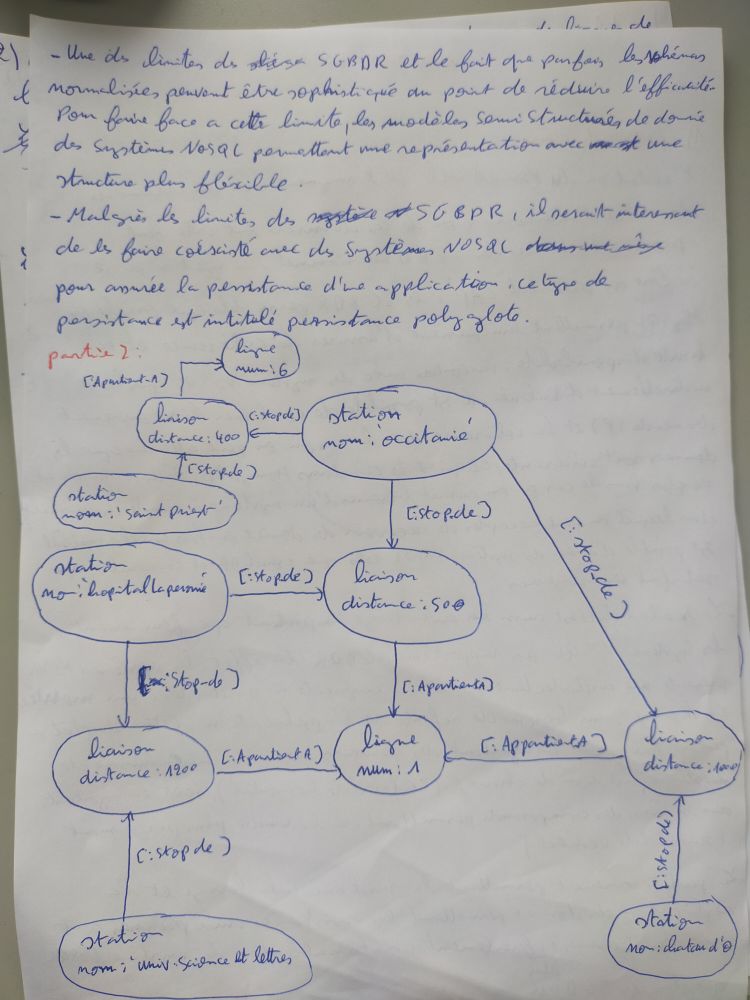 - Une des limites des SGBDR et le fait que parfois les schémas
normalisées peuvent être sophistiqué au point de réduire l'efficacité.
Pour faire face a cette limite, les modèles Semi Structurés de donnée
des Systèmes NoSQL permettent une représentation avec une
structure plus fléxible.
- Malgrès les limites des SGBDR, il serait interessant
de les faire coéxisté avec des Systèmes NOSQL
pour assurée la persistance d'une application. ce type de
persistance est intitulé persistance polyglote.
partie 2:
ligne
num : 6
[Apartient-A]
liaison
distance : 400
[:stop_de]
station
nom : 'occitanié'
[Stop_de]
station
nom : 'saint priest'
[:stop_de]
[:stop_de]
station
nom : 'hopital lapeyronié'
[:stop_de]
liaison
distance : 500
[:Stop-de]
[:ApartientA]
liaison
distance : 1200
[:ApartientA]
ligne
num : 1
[:AppartientA]
liaison
distance : 1000
[:stop_de]
[:stop_de]
station
nom : 'univ. science et lettres
station
nom : chateau d'O